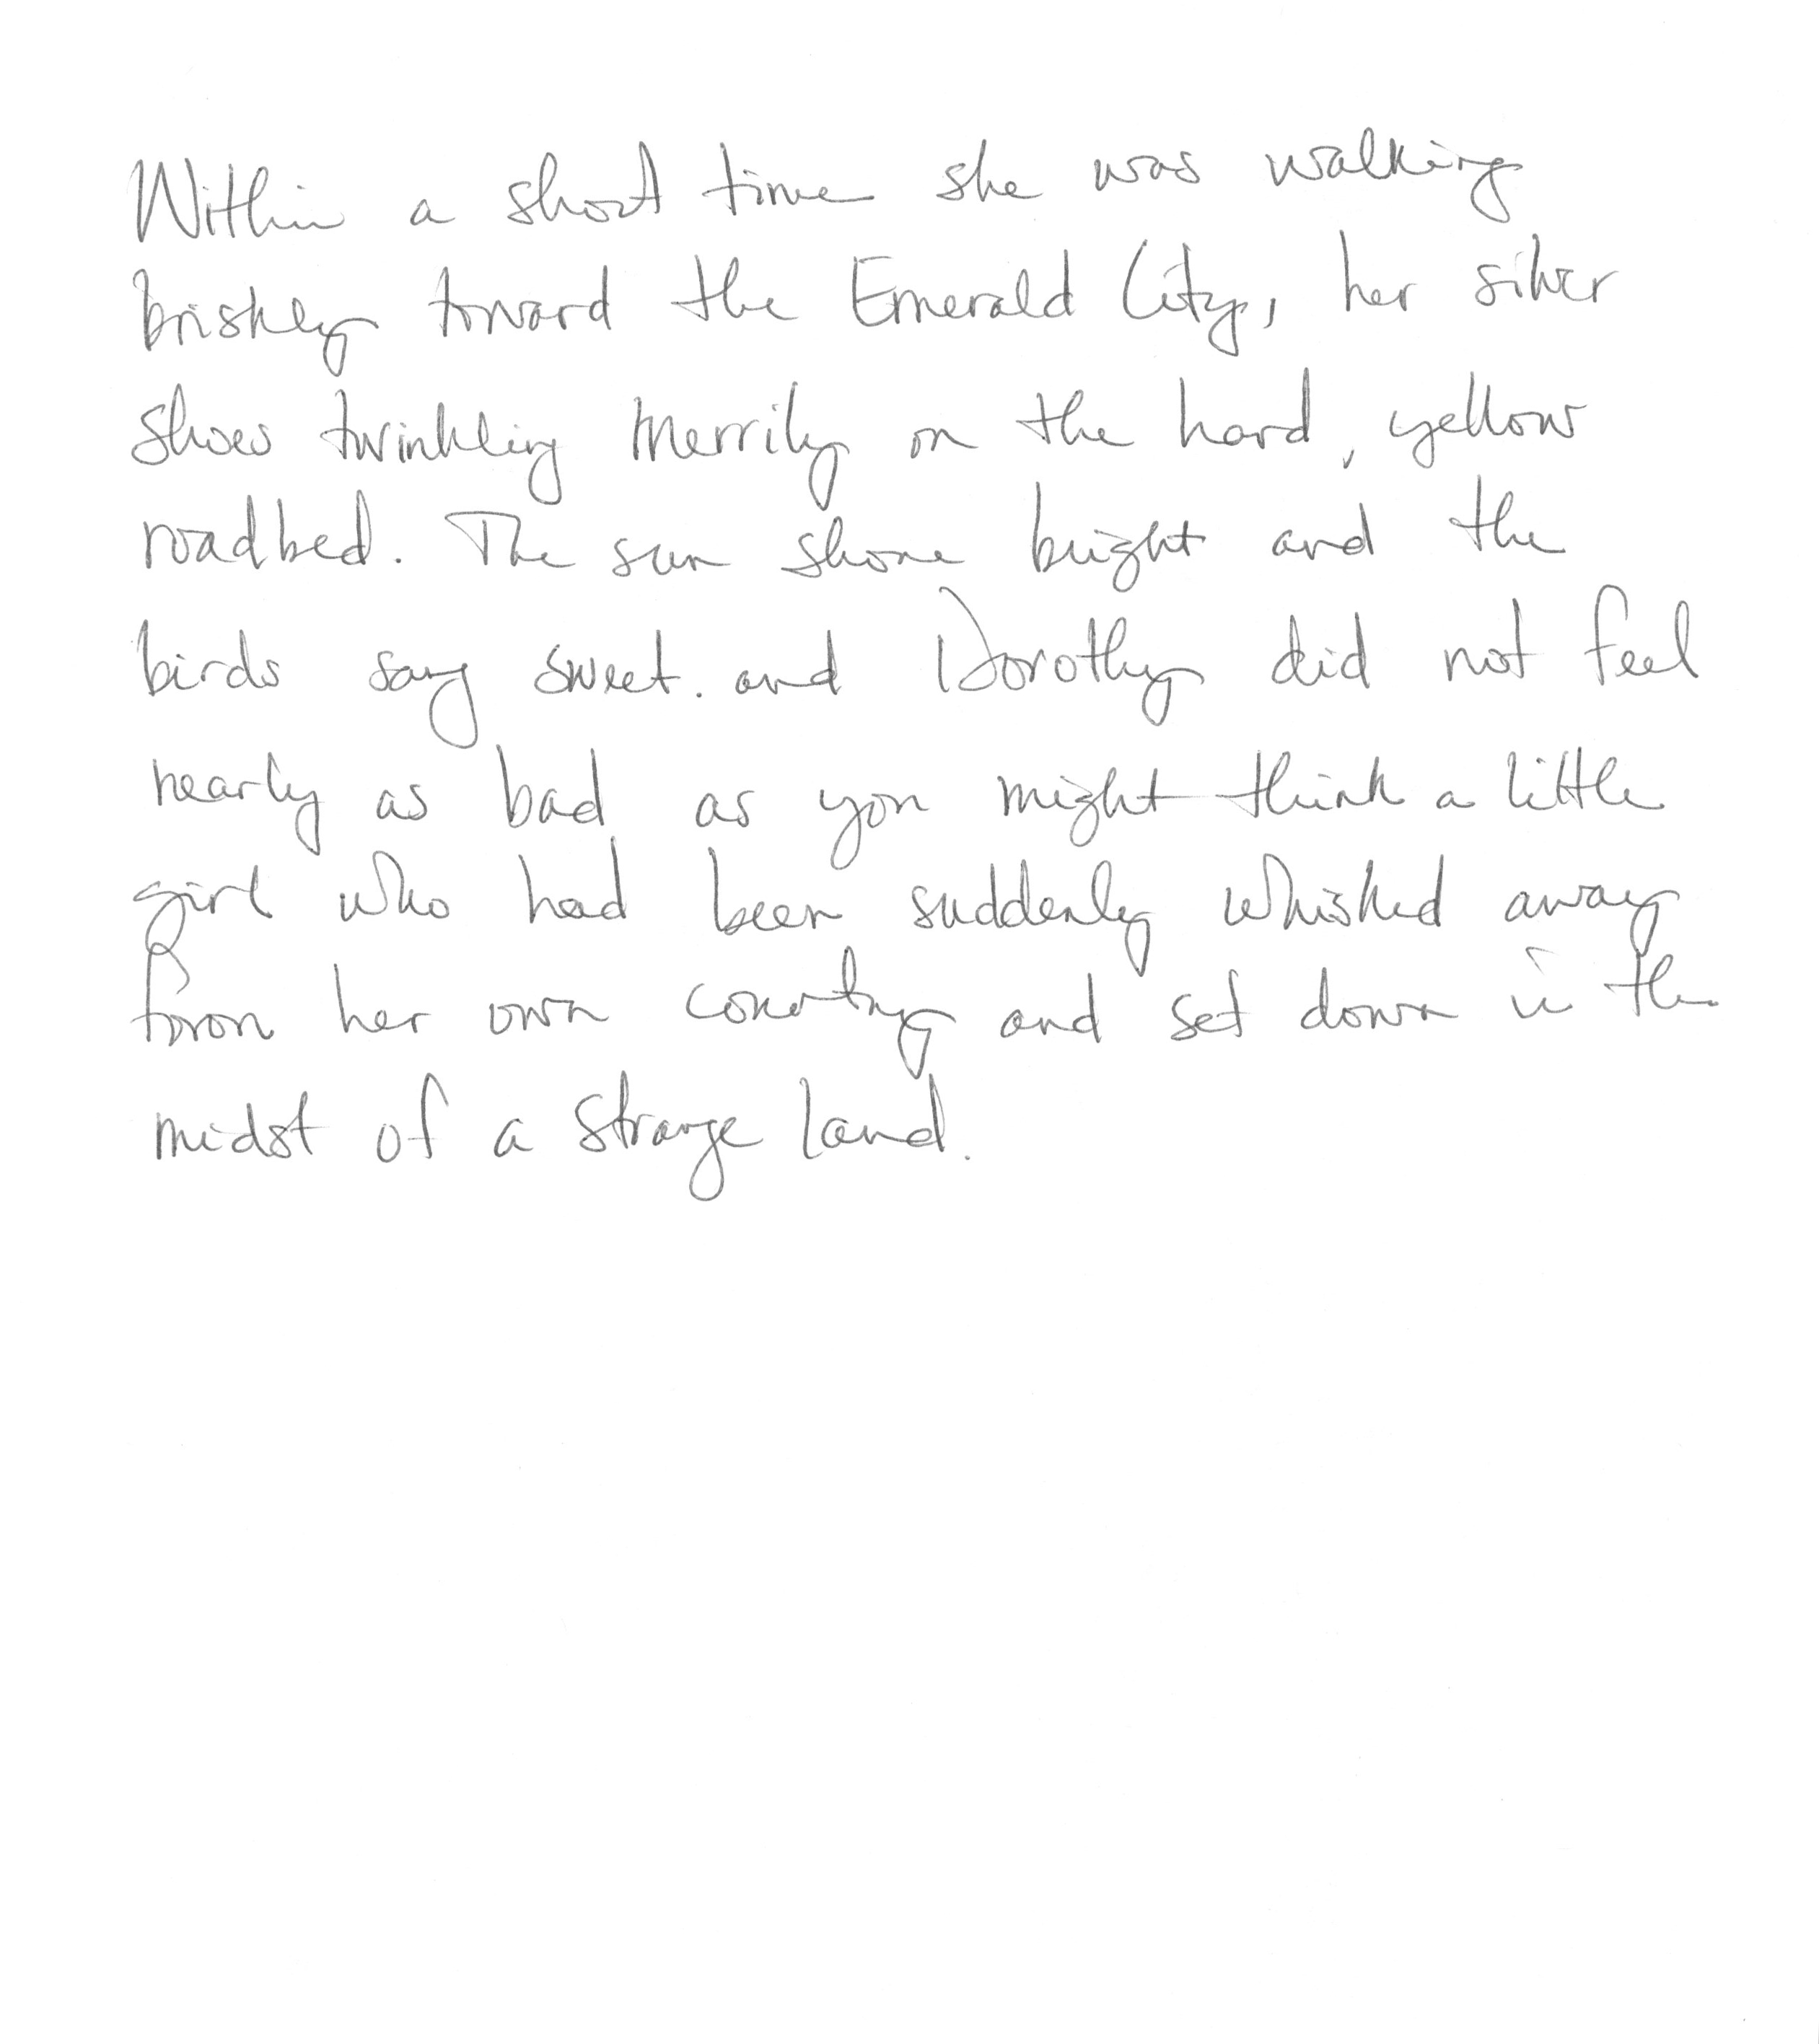 Within a short time she was walking
briskly toward the Emerald City, her silver
shoes twinkling merrily on the hard, yellow
roadbed. The sun shone bright and the
birds sang sweet. and Dorothy did not feel
nearly as bad as you might think a little
girl who had been suddenly whisked away
from her own country and set down in the
midst of a strange land.